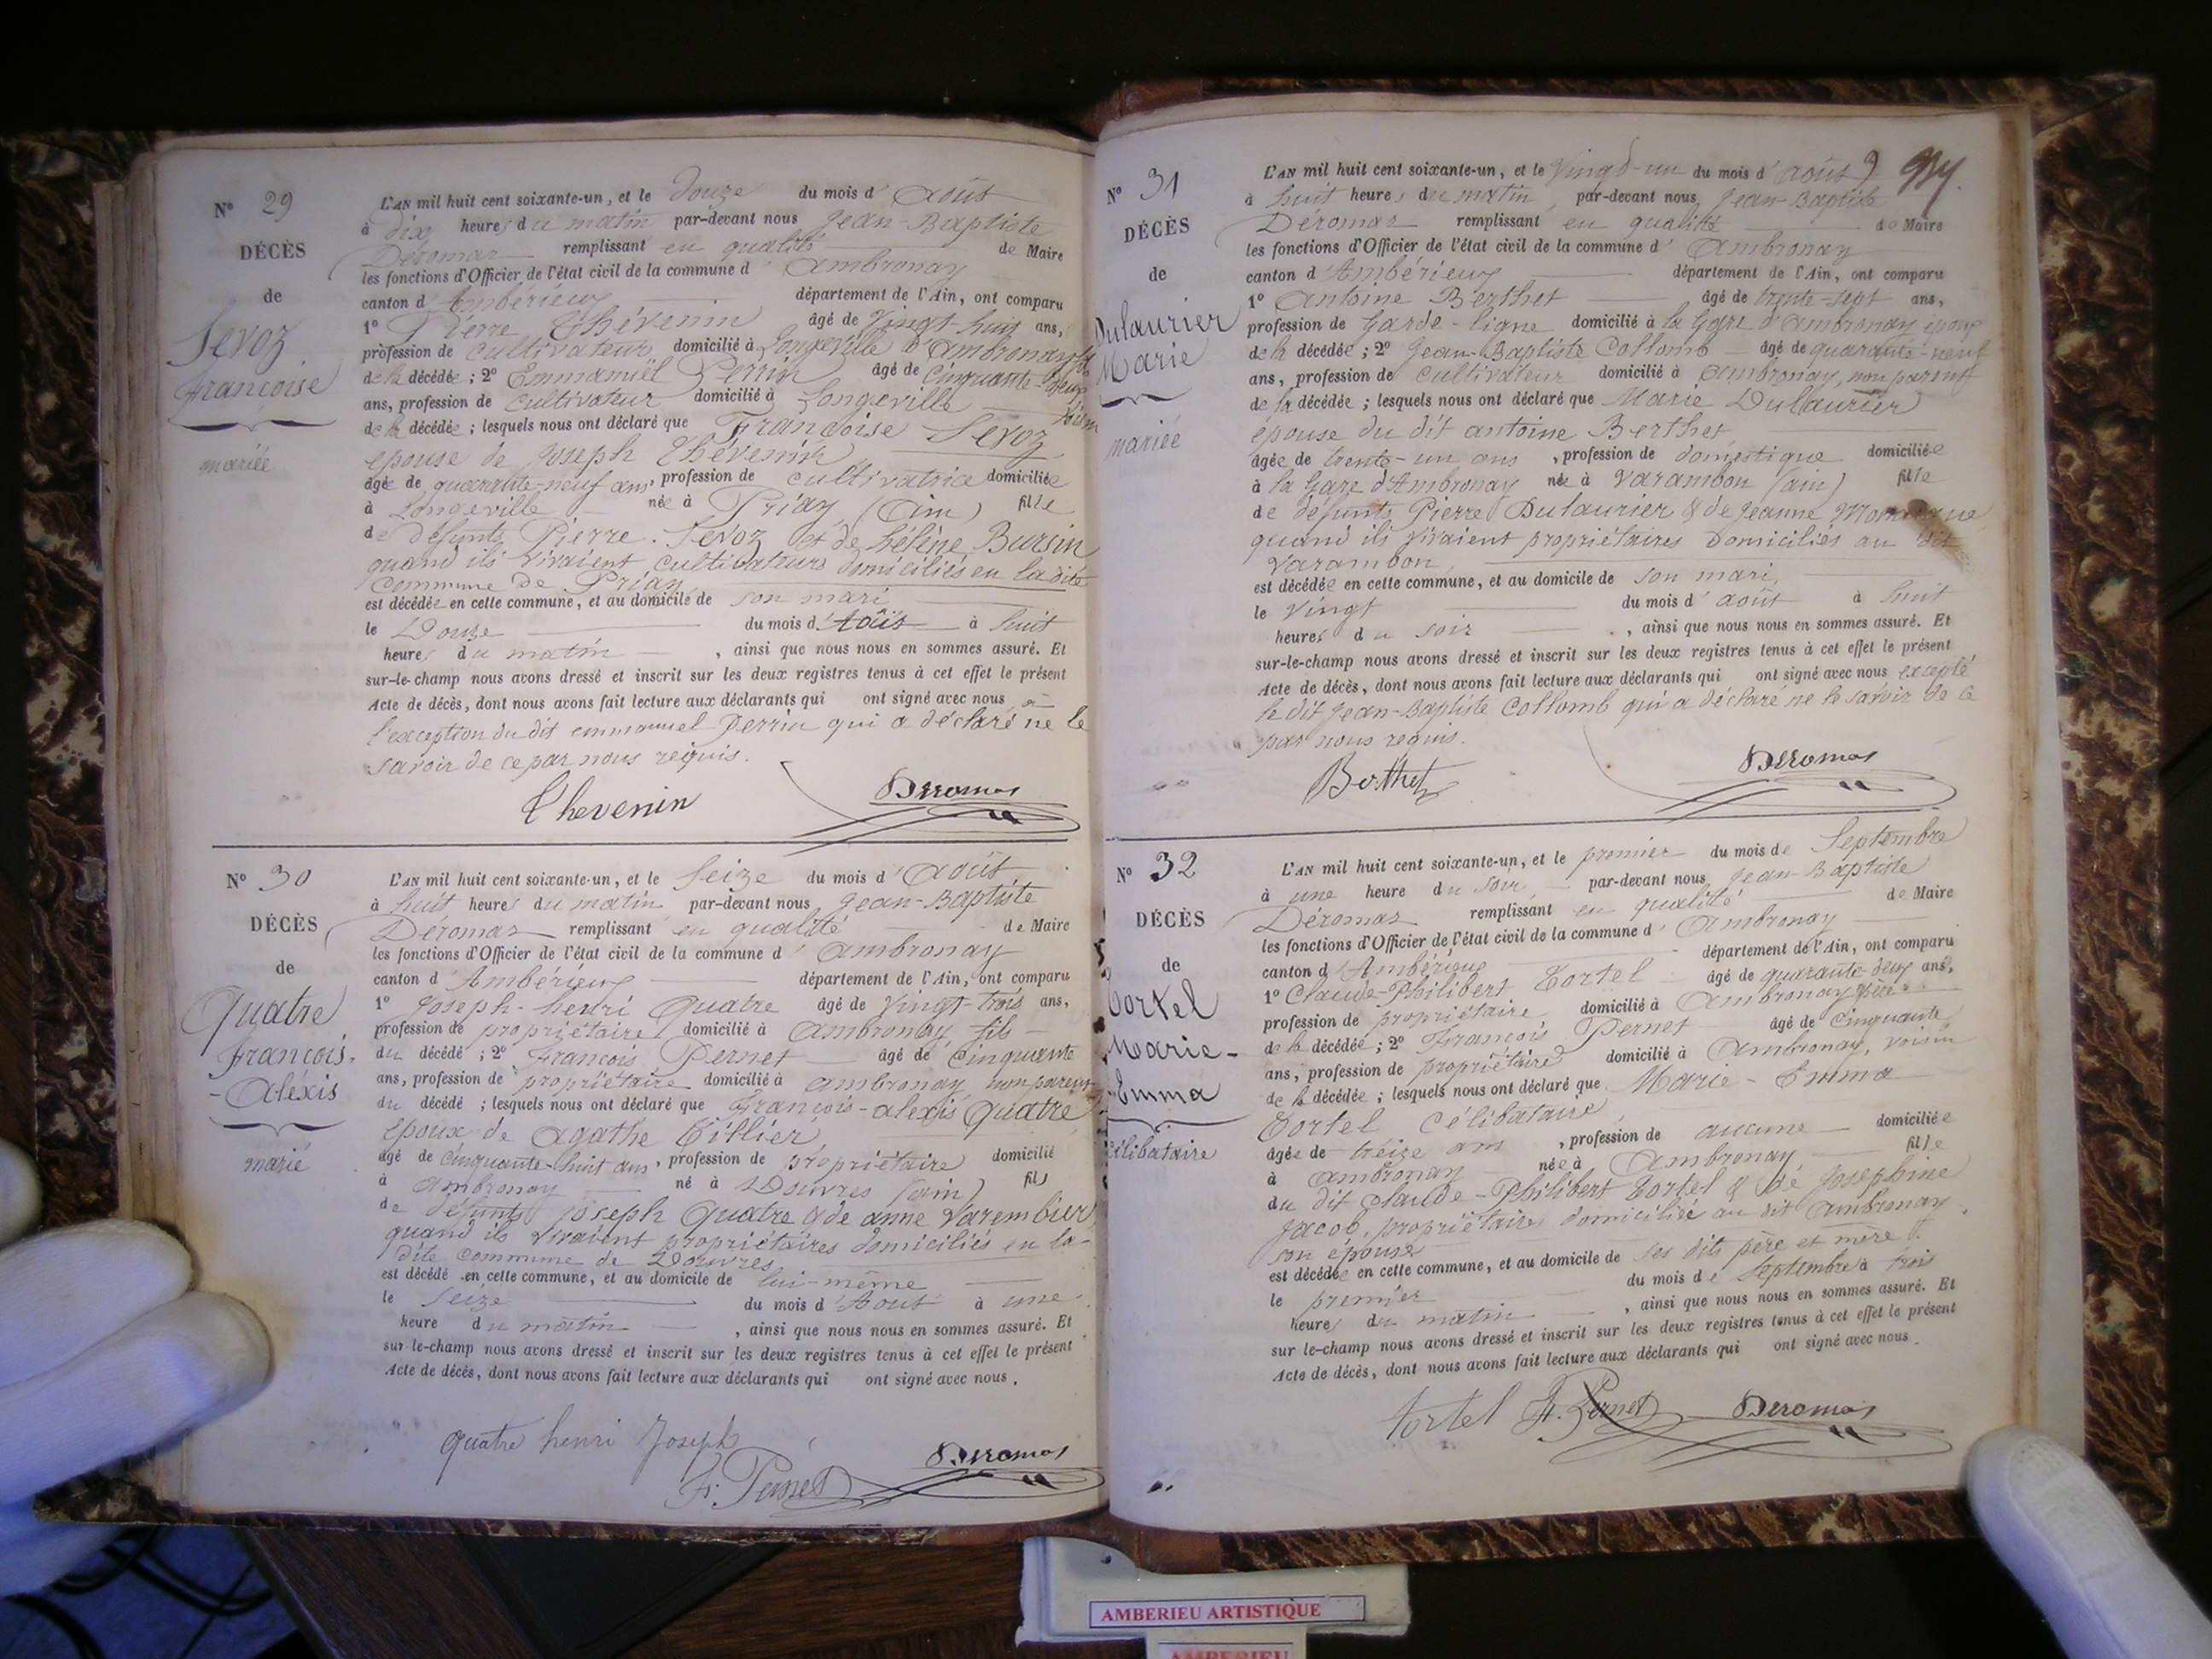 N° 29
DÉCÈS
de
Sevoz
françoise
mariée
L'AN mil huit cent soixante-un, et le Douze du mois d'Août
à dix heures du matin par-devant nous Jean-Baptiste
Déromas remplissant en qualité de Maire
les fonctions d'Officier de l'état civil de la commune d'Ambronay
canton d'Ambérieux département de l'Ain, ont comparu
1° Pierre Thévenin âgé de Vingt-huit ans,
profession de cultivateur domicilié à Longeville d'Ambronay fils
de la décédée ; 2° Emmanuël Perrin âgé de Cinquante-deux
ans, profession de cultivateur domicilié à Longeville voisin
de la décédée ; lesquels nous ont déclaré que Françoise Sevoz
épouse de Joseph Thévenin
âgée de quarante-neuf ans, profession de cultivatrice domiciliée
à Longeville née à Priay (Ain) fille
de défunts Pierre Sevoz et de hélène Bursin
quand ils vivaient cultivateurs domiciliés en la dite
commune de Priay
est décédée en cette commune, et au domicile de son mari
le Douze du mois d'Août à huit
heures du matin , ainsi que nous nous en sommes assuré. Et
sur-le-champ nous avons dressé et inscrit sur les deux registres tenus à cet effet le présent
Acte de décès, dont nous avons fait lecture aux déclarants qui ont signé avec nous à
l'exception du dit emmanuel Perrin qui a déclaré ne le
savoir de ce par nous requis.
Thevenin Deromas
N° 30
DÉCÈS
de
Quatre
françois-
-Aléxis
marié
L'AN mil huit cent soixante-un, et le Seize du mois d'Août
à huit heures du matin par-devant nous Jean-Baptiste
Déromas remplissant en qualité de Maire
les fonctions d'Officier de l'état civil de la commune d'Ambronay
canton d'Ambérieux département de l'Ain, ont comparu
1° Joseph-henri Quatre âgé de Vingt-trois ans,
profession de propriétaire domicilié à Ambronay fils
du décédé ; 2° François Pernet âgé de Cinquante
ans, profession de propriétaire domicilié à Ambronay non parent
du décédé ; lesquels nous ont déclaré que François-alexis Quatre
époux de Agathe Tillier
âgé de Cinquante-huit ans, profession de propriétaire domicilié
à Ambronay né à Douvres (ain) fils
de défunts Joseph Quatre & de anne Varembier
quand ils vivaient propriétaires domiciliés en la-
dite commune de Douvres
est décédé en cette commune, et au domicile de lui-même
le Seize du mois d'Août à une
heure du matin , ainsi que nous nous en sommes assuré. Et
sur-le-champ nous avons dressé et inscrit sur les deux registres tenus à cet effet le présent
Acte de décès, dont nous avons fait lecture aux déclarants qui ont signé avec nous.
Quatre henri Joseph
F. Pernet Deromas
N° 31
DÉCÈS
de
Dulaurier
Marie
mariée
L'AN mil huit cent soixante-un, et le Vingt-un du mois d'août
à huit heures du matin, par-devant nous Jean-Baptiste
Déromas remplissant en qualité de Maire
les fonctions d'Officier de l'état civil de la commune d'Ambronay
canton d'Ambérieux département de l'Ain, ont comparu
1° Antoine Berthet âgé de trente-sept ans,
profession de Garde-ligne domicilié à la Gare d'Ambronay époux
de la décédée ; 2° Jean-Baptiste Collomb âgé de quarante-neuf
ans, profession de cultivateur domicilié à Ambronay, non parent
de la décédée ; lesquels nous ont déclaré que Marie Dulaurier
épouse du dit antoine Berthet
âgée de trente-un ans, profession de domestique domiciliée
à la Gare d'Ambronay née à Varambon (ain) fille
de défunts Pierre Dulaurier & de Jeanne
quand ils vivaient propriétaires domiciliés au dit
Varambon
est décédée en cette commune, et au domicile de son mari,
le Vingt du mois d'août à huit
heures du soir , ainsi que nous nous en sommes assuré. Et
sur-le-champ nous avons dressé et inscrit sur les deux registres tenus à cet effet le présent
Acte de décès, dont nous avons fait lecture aux déclarants qui ont signé avec nous excepté
le dit Jean-Baptiste Collomb qui a déclaré ne le savoir de ce
par nous requis.
Berthet Deromas
N° 32
DÉCÈS
de
Tortel
Marie-
-Emma
célibataire
L'AN mil huit cent soixante-un, et le premier du mois de Septembre
à une heure du soir par-devant nous Jean-Baptiste
Déromas remplissant en qualité de Maire
les fonctions d'Officier de l'état civil de la commune d'Ambronay
canton d'Ambérieux département de l'Ain, ont comparu
1° Claude-Philibert Tortel âgé de quarante-deux ans,
profession de propriétaire domicilié à Ambronay père
de la décédée ; 2° François Pernet âgé de Cinquante
ans, profession de propriétaire domicilié à Ambronay, voisin
de la décédée ; lesquels nous ont déclaré que Marie-Emma
Tortel célibataire
âgée de treize ans, profession de aucune domiciliée
à Ambronay née à Ambronay fille
du dit Claude-Philibert Tortel & de Josephine
Jacob, propriétaires domiciliés au dit Ambronay
son épouse
est décédée en cette commune, et au domicile de ses dits père et mère
le premier du mois de Septembre à trois
heures du matin , ainsi que nous nous en sommes assuré. Et
sur-le-champ nous avons dressé et inscrit sur les deux registres tenus à cet effet le présent
Acte de décès, dont nous avons fait lecture aux déclarants qui ont signé avec nous.
tortel F. Pernet Deromas
AMBERIEU ARTISTIQUE
AMBERIEU